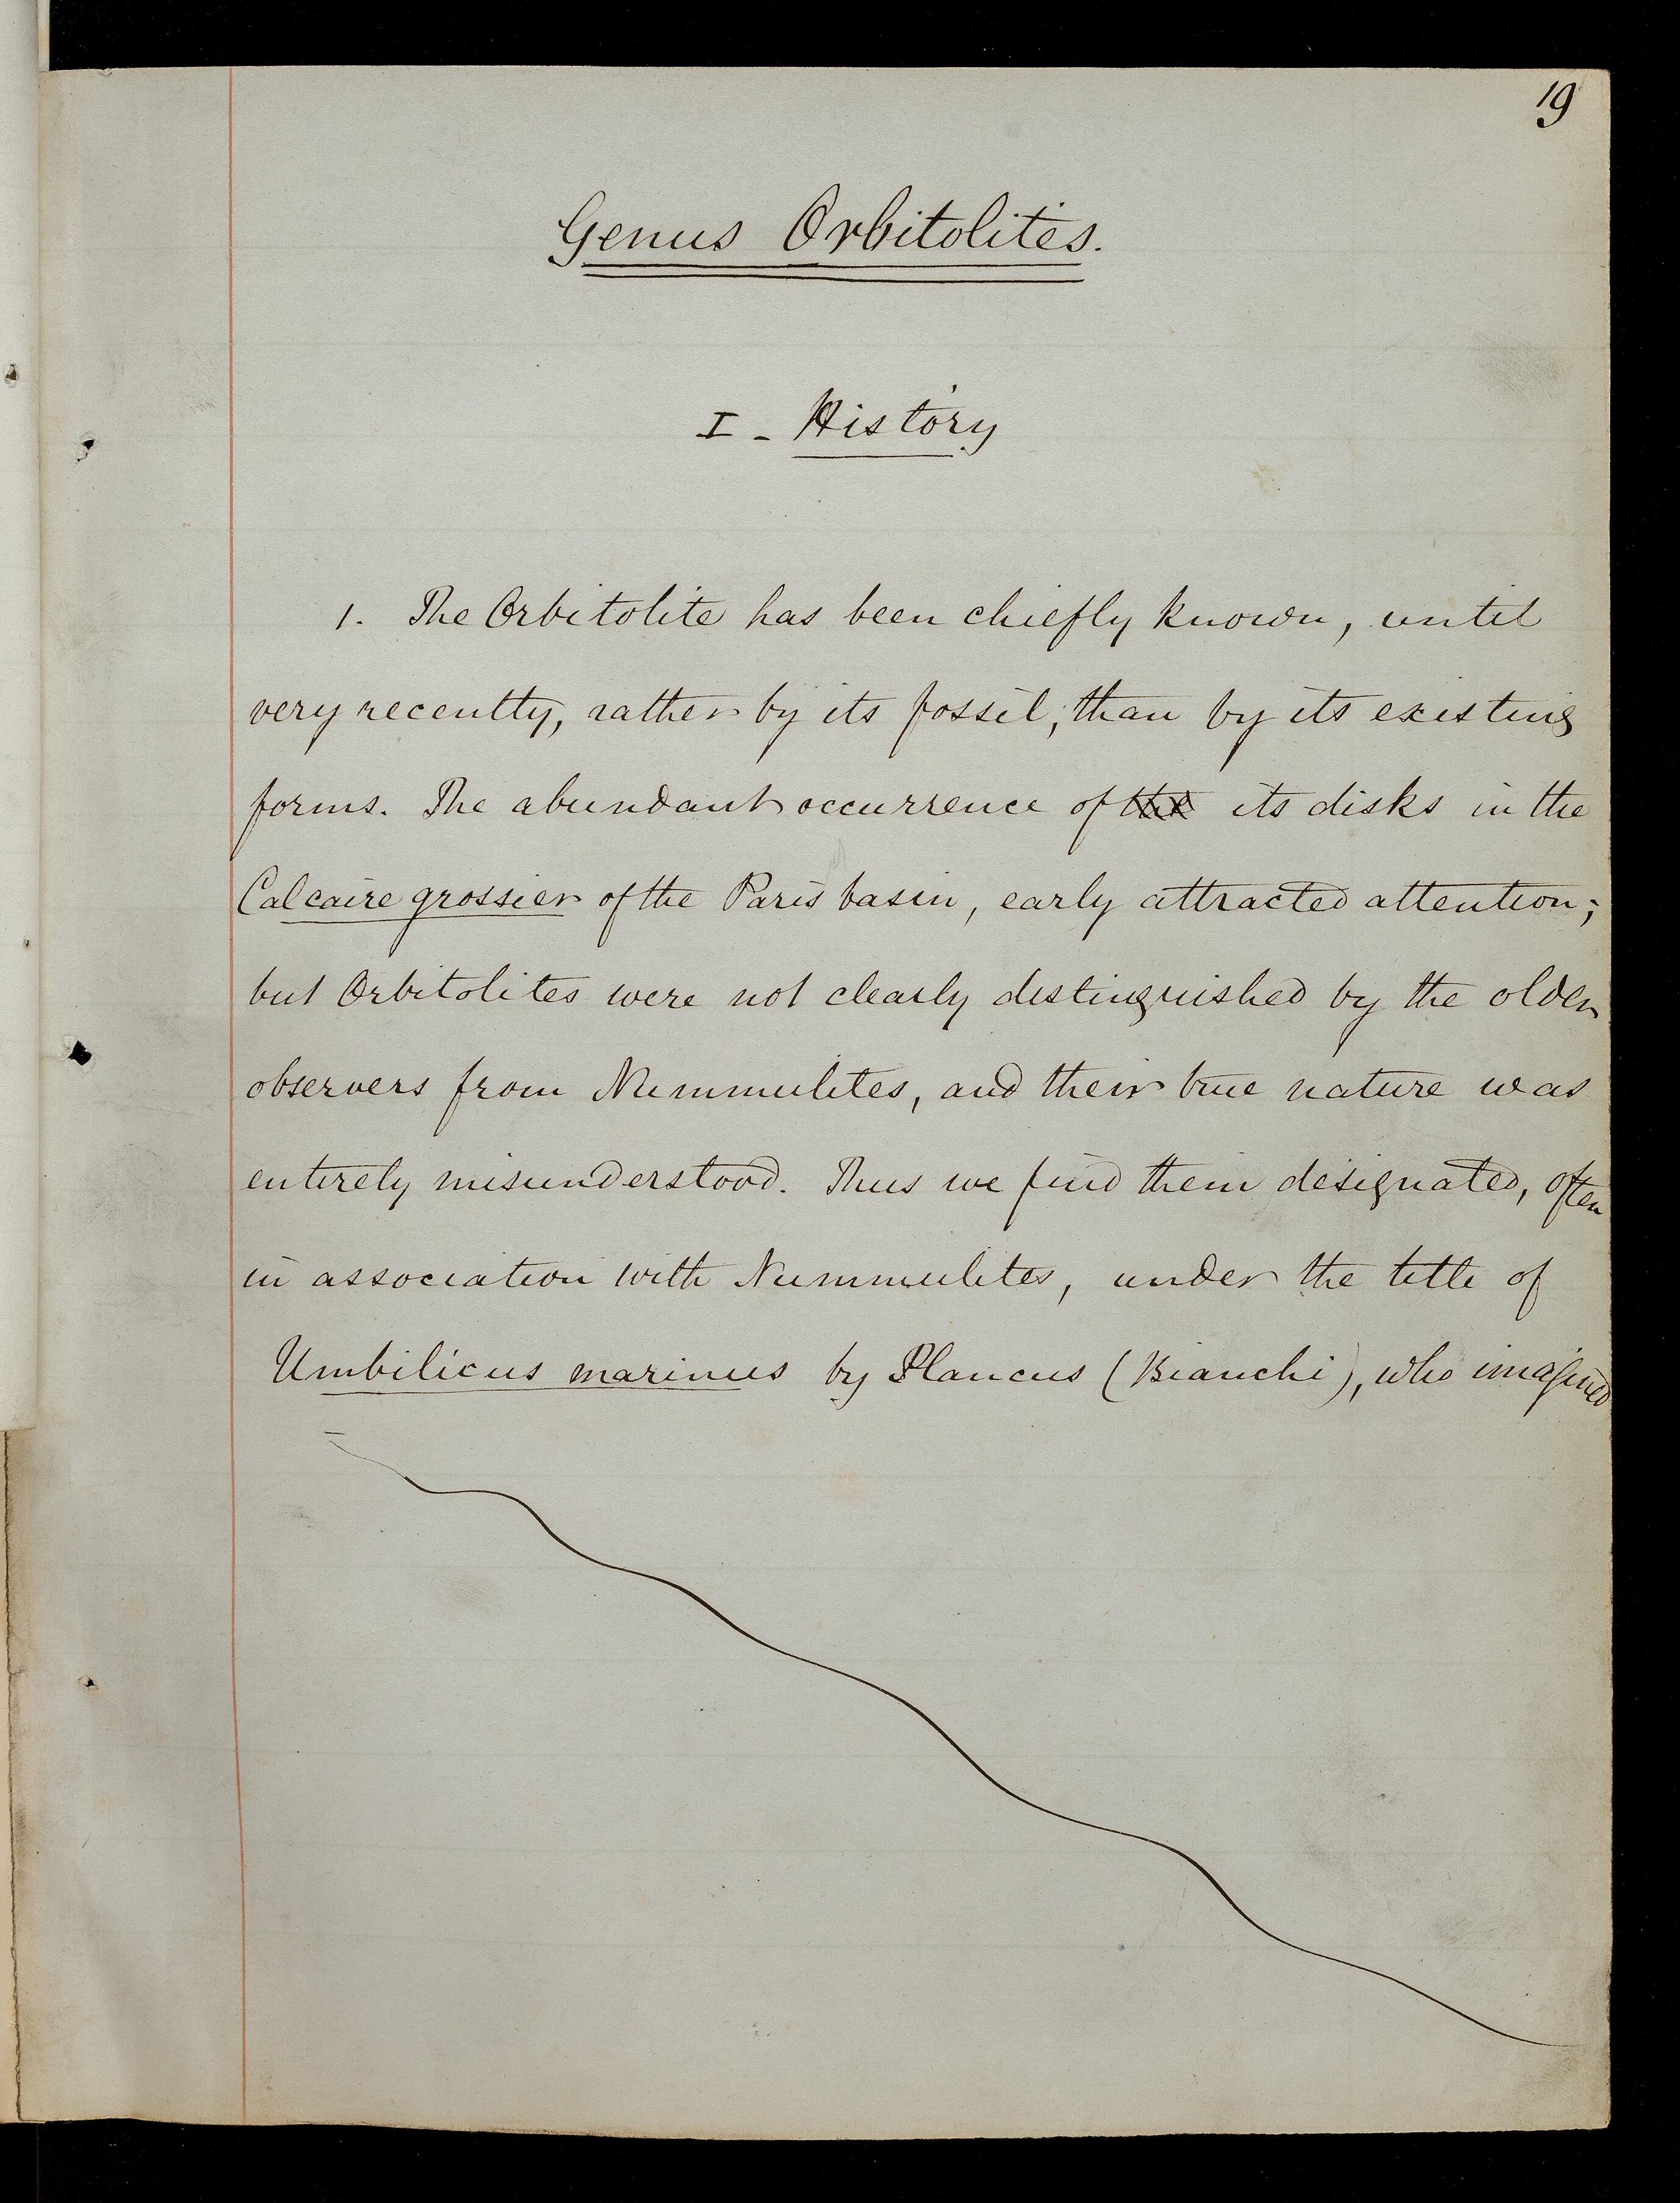 19
Genus Orbitolites.
I - History
1. The Orbitolite has been chiefly known, until
very recently, rather by its fossil, than by its existing
forms. The abundant occurrence of the its disks in the
Calcaire grossier of the Paris basin, early attracted attention;
but Orbitolites were not clearly distinguished by the older
observers from Nummulites, and their true nature was
entirely misunderstood. Thus we find them designated, often
in association with Nummulites, under the title of
Umbilicus marinus by Plancus (Bianchi), who imagined